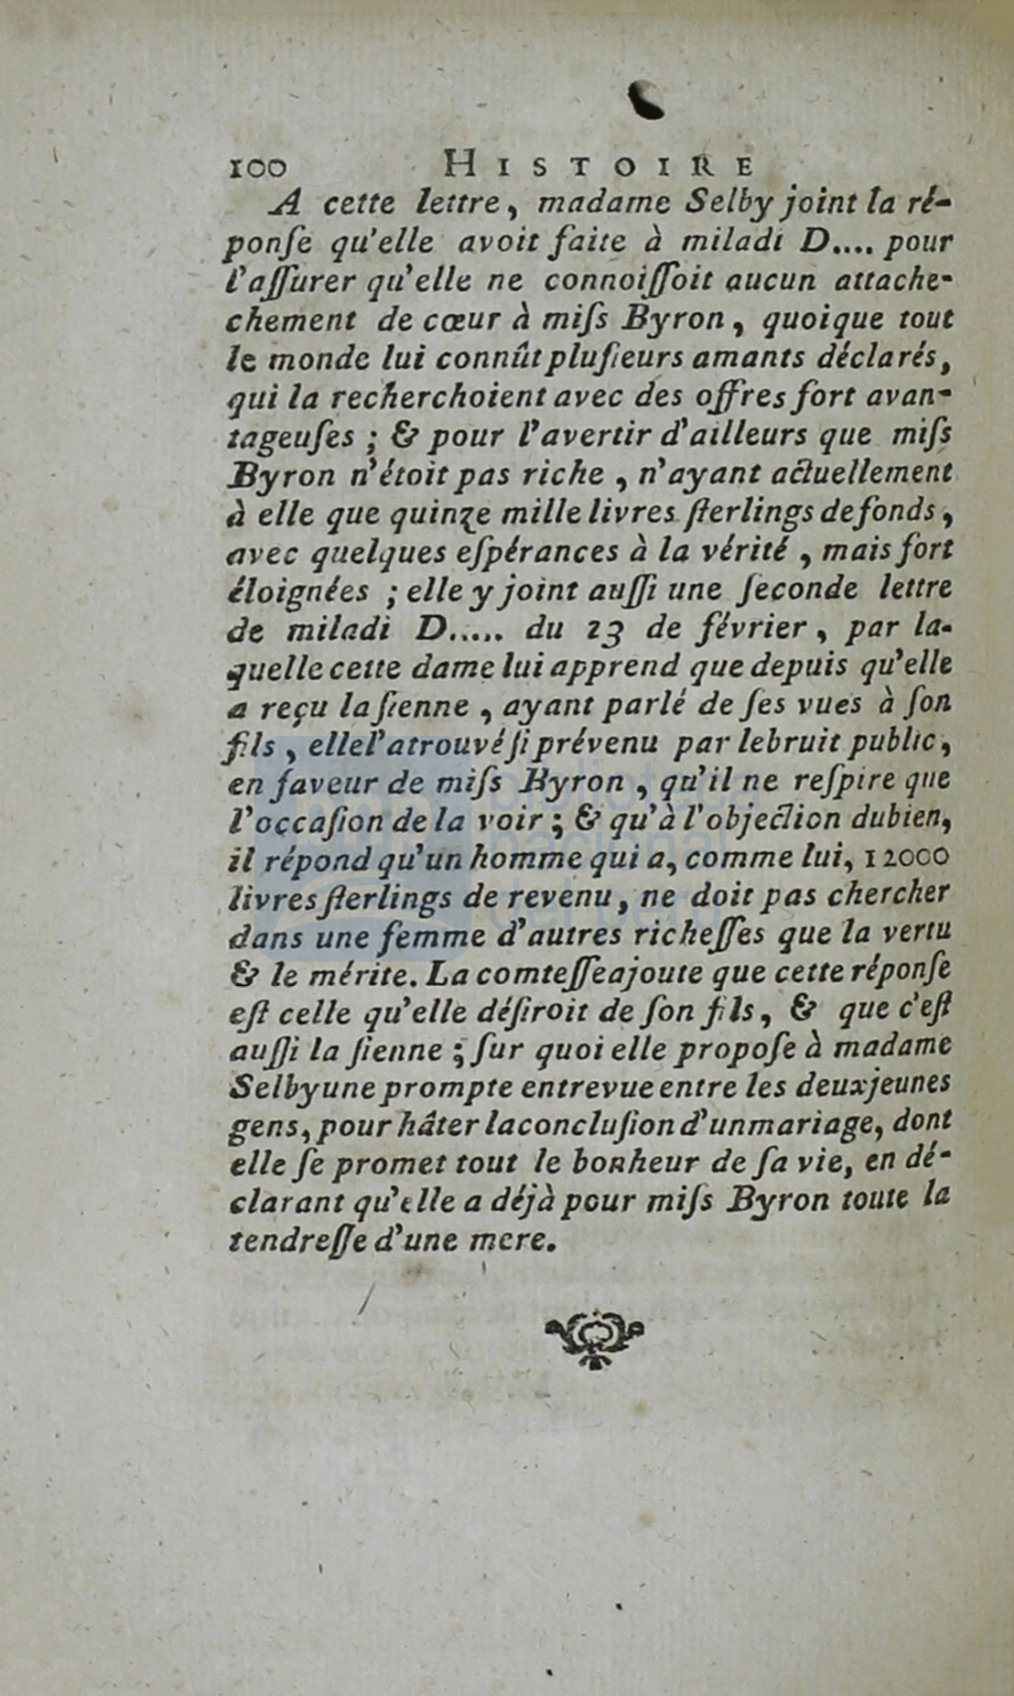 100 HISTOIRE
A cette lettre, madame Selby joint la ré-
ponſe qu'elle avoit faite à miladi D.... pour
l'aſſurer qu'elle ne connoiſſoit aucun attache-
chement de cœur à miſs Byron, quoique tout
le monde lui connût pluſieurs amants déclarés,
qui la recherchoient avec des offres fort avan-
tageuſes ; & pour l'avertir d'ailleurs que miſs
Byron n'étoit pas riche, n'ayant actuellement
à elle que quinze mille livres ſterlings de fonds,
avec quelques eſpérances à la vérité, mais fort
éloignées ; elle y joint auſſi une ſeconde lettre
de miladi D..... du 23 de février, par la-
quelle cette dame lui apprend que depuis qu'elle
a reçu la ſienne, ayant parlé de ſes vues à ſon
fils, elle l'a trouvé ſi prévenu par le bruit public,
en faveur de miſs Byron, qu'il ne reſpire que
l'occaſion de la voir ; & qu'à l'objection du bien,
il répond qu'un homme qui a, comme lui, 12000
livres ſterlings de revenu, ne doit pas chercher
dans une femme d'autres richeſſes que la vertu
& le mérite. La comteſſe ajoute que cette réponſe
eſt celle qu'elle déſiroit de ſon fils, & que c'eſt
auſſi la ſienne ; ſur quoi elle propoſe à madame
Selby une prompte entrevue entre les deux jeunes
gens, pour hâter la concluſion d'un mariage, dont
elle ſe promet tout le bonheur de ſa vie, en dé-
clarant qu'elle a déjà pour miſs Byron toute la
tendreſſe d'une mere.
biblioteca
nacional
del perú